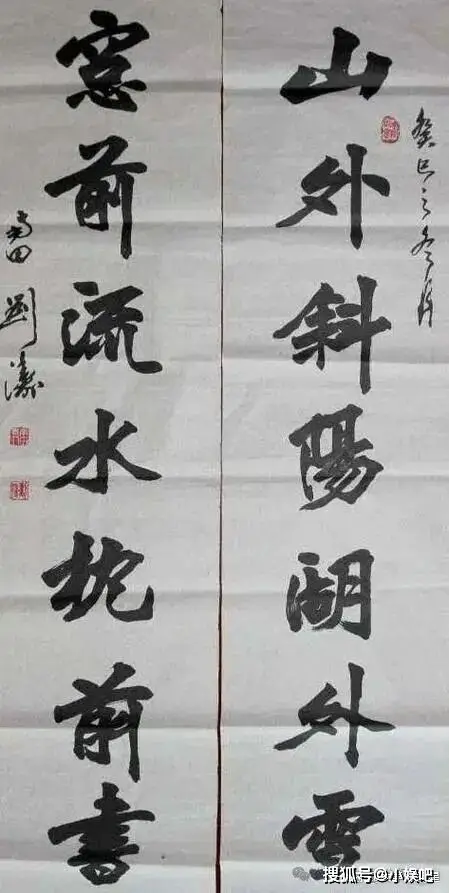 癸巳之冬月
山外斜陽湖外雪
窓前流水枕前書
田 劉
搜狐号@小娱吧